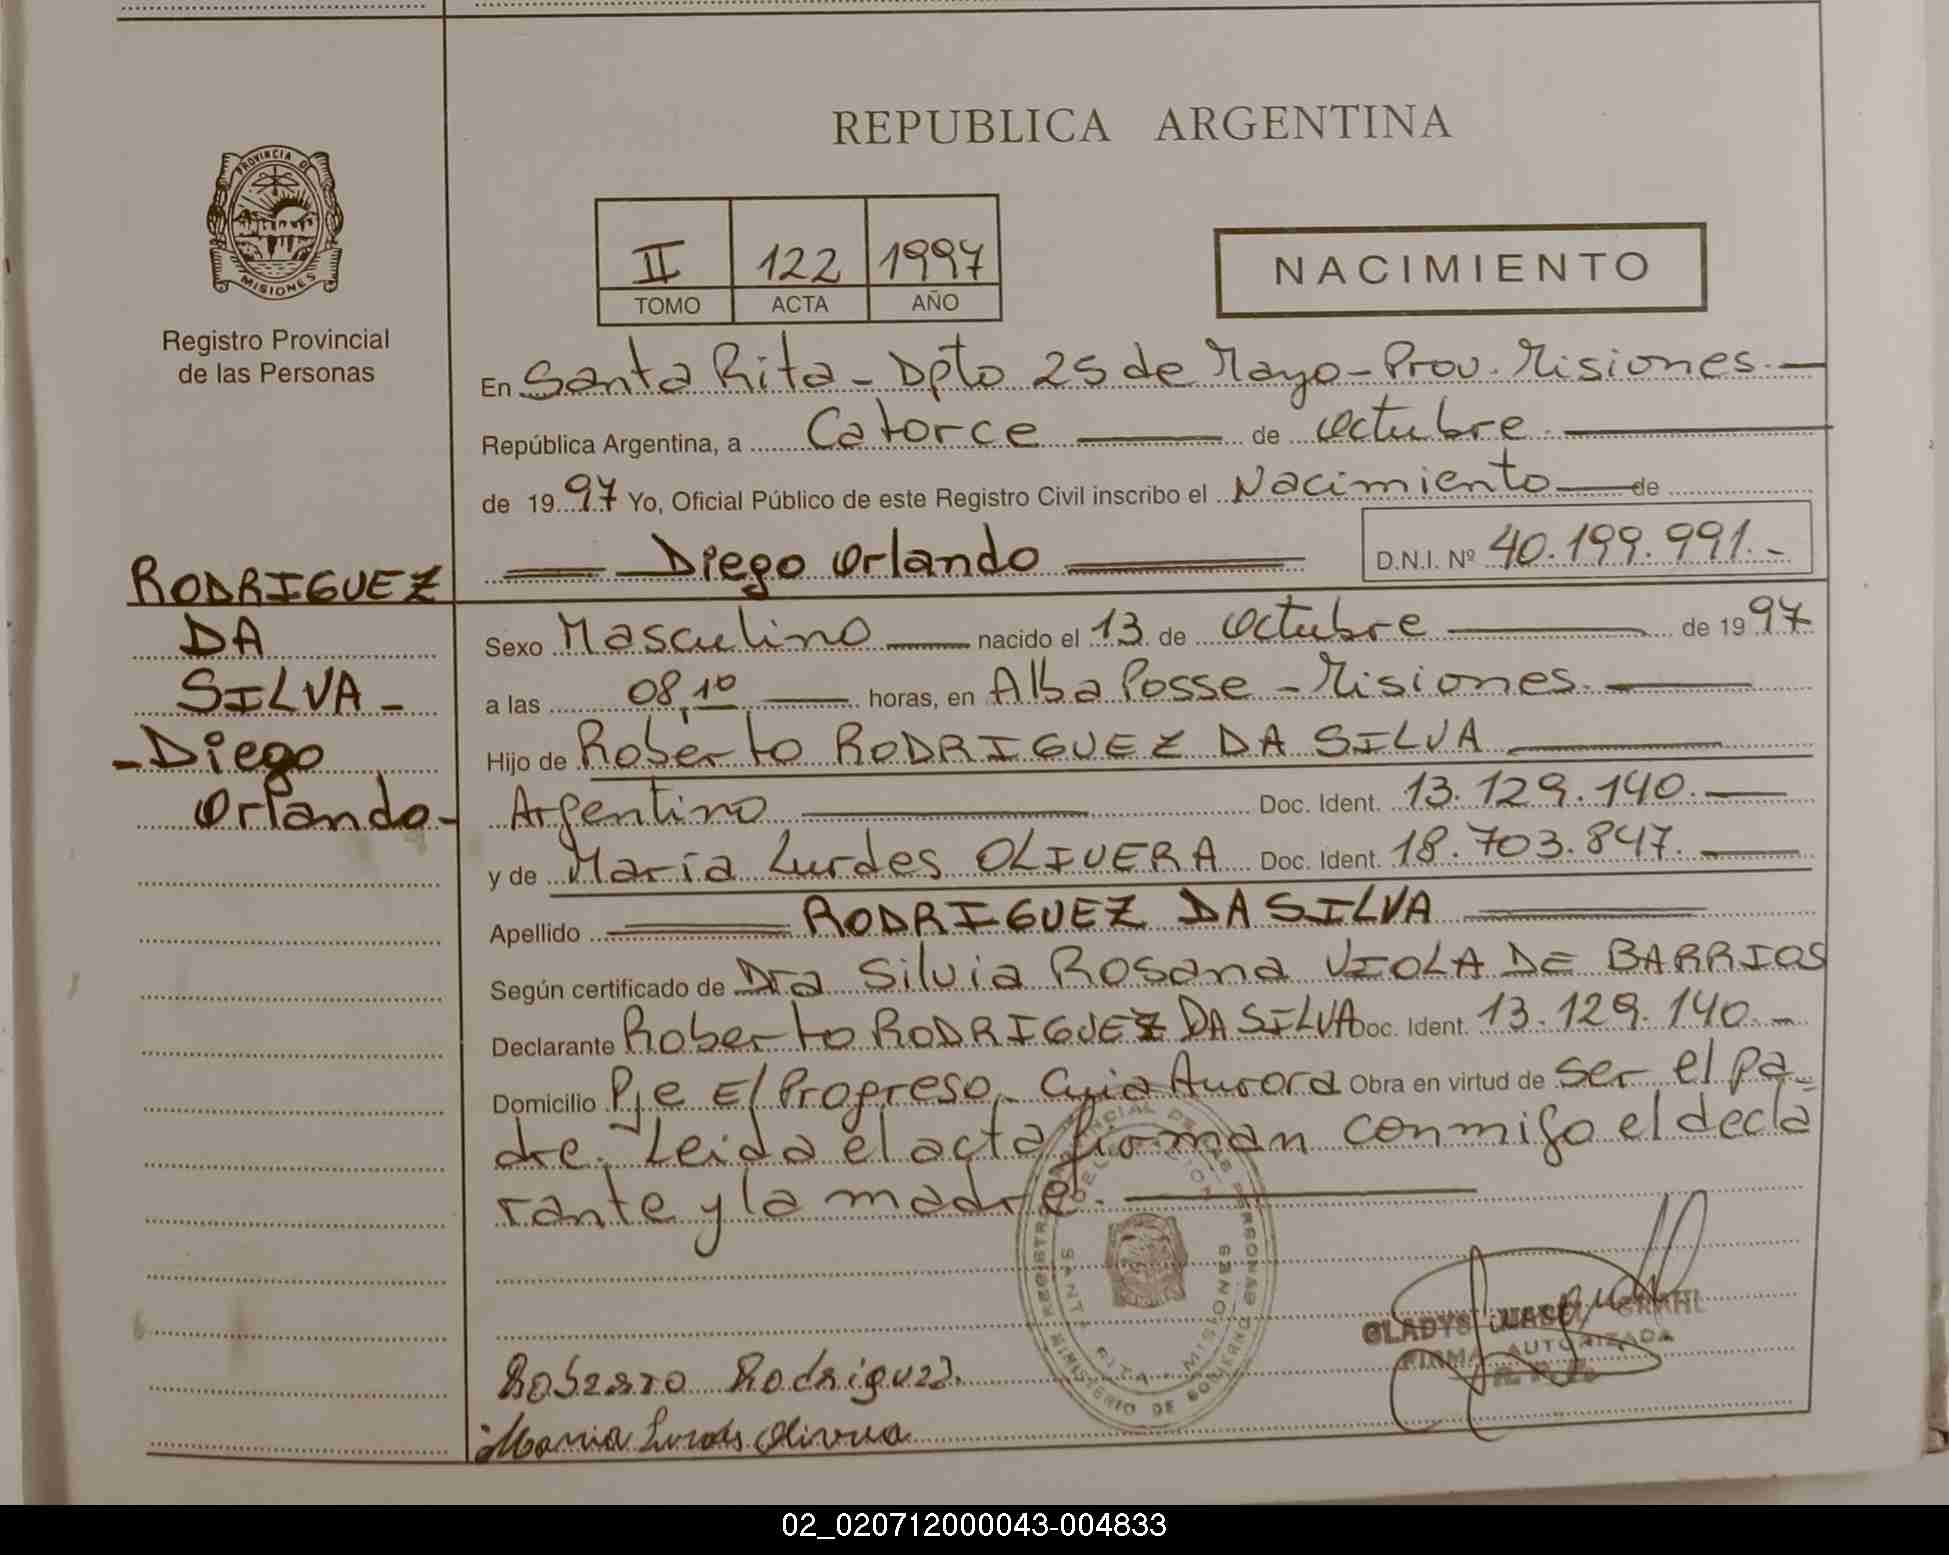 REPUBLICA ARGENTINA
PROVINCIA DE
MISIONES
Registro Provincial
de las Personas
II 122 1997
TOMO ACTA AÑO
NACIMIENTO
En Santa Rita - Dpto 25 de Mayo - Prov. Misiones. —
República Argentina, a Catorce — de octubre. —
de 1997 Yo, Oficial Público de este Registro Civil inscribo el Nacimiento — de
— Diego Orlando — D.N.I. Nº 40.199.991.-
RODRIGUEZ
DA
SILVA -
- Diego
Orlando -
Sexo Masculino — nacido el 13 de octubre — de 1997
a las 08,10 — horas, en Alba Posse - Misiones. —
Hijo de Roberto RODRIGUEZ DA SILVA —
Argentino — Doc. Ident. 13.129.140. —
y de María Lurdes OLIVERA Doc. Ident. 18.703.847. —
Apellido — RODRIGUEZ DA SILVA —
Según certificado de Dra Silvia Rosana VIOLA DE BARRIOS
Declarante Roberto RODRIGUEZ DA SILVA Doc. Ident. 13.129.140. -
Domicilio Pje El Progreso - Aurora Obra en virtud de ser el pa-
dre. Leida el acta firman conmigo el decla
rante y la madre. —
SANTA RITA - MISIONES
MINISTERIO DE GOBIERNO
Roberto Rodriguez.
Maria Lurdes Olivera
GLADYS GRAHL
FIRMA AUTORIZADA
02_020712000043-004833